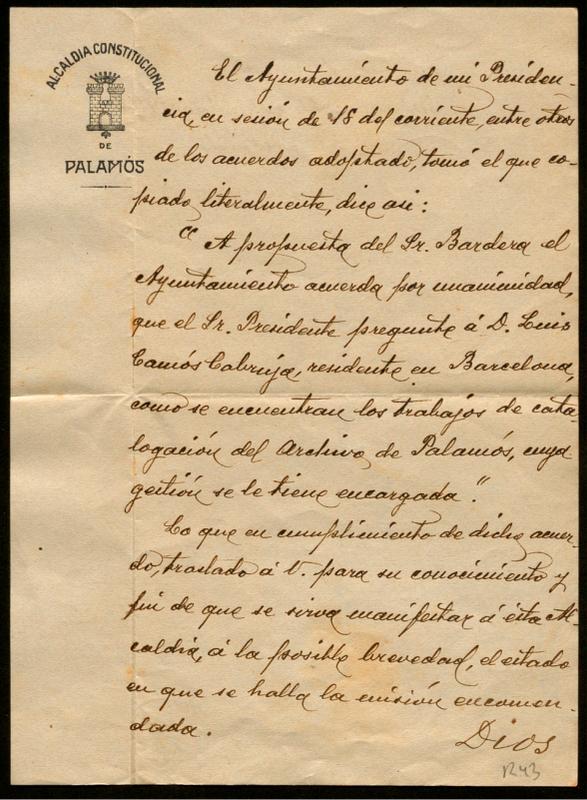 ALCALDIA CONSTITUCIONAL
DE
PALAMÓS
El Ayuntamiento de mi Presiden-
cia, en sesión de 18 del corriente, entre otros
de los acuerdos adoptado, tomó el que co-
piado literalmente, dice asi:
" A propuesta del Sr. Bardera el
Ayuntamiento acuerda por unanimidad,
que el Sr. Presidente pregunte á D. Luis
Camós Cabruja, residente en Barcelona,
como se encuentran los trabajos de cata-
logación del Archivo de Palamós, cuya
gestión se le tiene encargada".
Lo que en cumplimiento de dicho acuer-
do, traslado á V. para su conocimiento y
fin de que se sirva manifestar á ésta Al-
caldia, á la posible brevedad, el estado
en que se halla la misión encomen-
dada.
Dios
1243